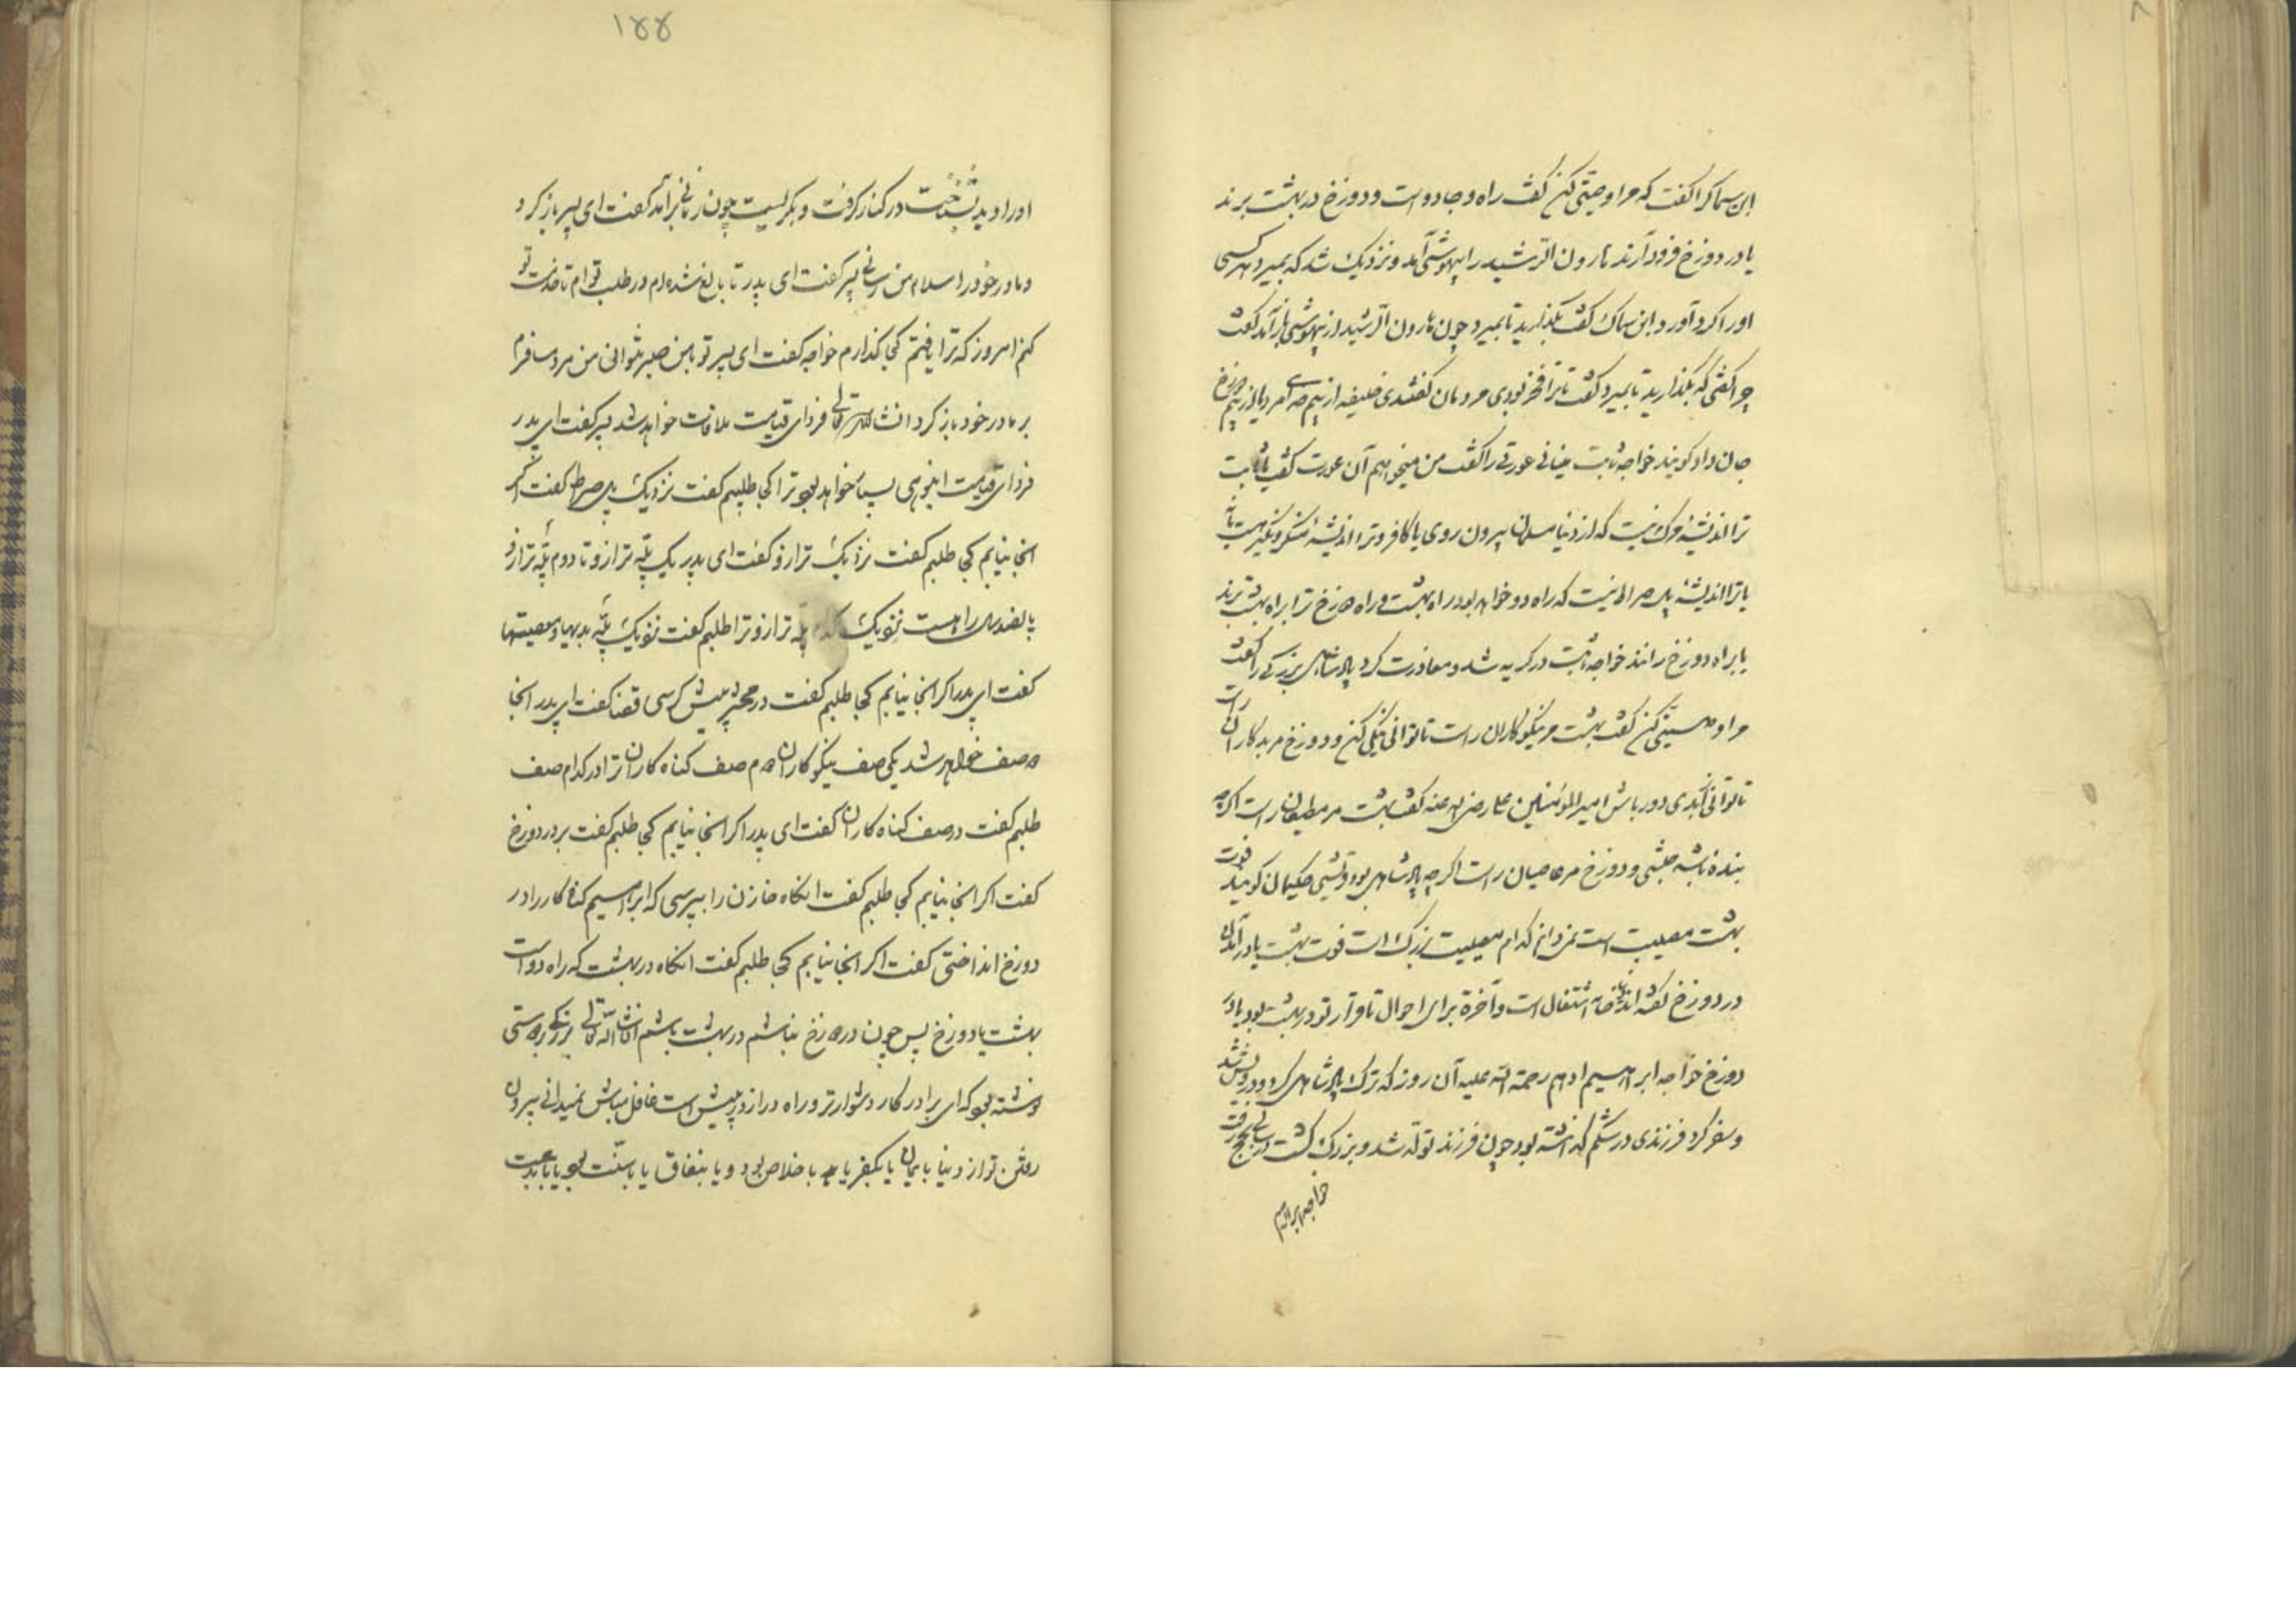 ابن سماک را گفت که مرا وصیتی کن گفت راه و جاده است و دوزخ در بهشت برند
یا در دوزخ فرود آرند هارون الرشید را بیهوشی آمد و نزدیک شد که بمیرد هر کسی
او را گرد آورد و ابن سماک گفت بگذارید تا بمیرد چون هارون الرشید از بیهوشی باز آمد گفت
چرا گفتی که بگذارید تا بمیرد گفت تا ترا فخر بودی مردمان گفتندی خلیفه از بیم دوزخ
جان داد گویند خواجه ثابت عورتی را گفت من میخواهم آن عورت گفت یا ثابت
ترا اندیشه مرگ نیست که از دنیا مسلمان بیرون روی یا کافر و ترا اندیشه منکر و نکیر نیست
یا ترا اندیشه پل صراط نیست که راه دو خواهد بود راه بهشت و راه دوزخ ترا براه بهشت برند
یا براه دوزخ رانند خواجه ثابت در گریه شد و معذرت کرد پادشاهی بزرگی را گفت
مرا وصیتی کن گفت بهشت مر نیکوکاران راست تا توانی نیکی کن و دوزخ مر بدکاران راست
تا توانی از بدی دور باش امیر المؤمنین علی رضی الله عنه گفت بهشت مر مطیعان راست اگرچه
بنده باشد حبشی و دوزخ مر عاصیان راست اگر چه پادشاهی بود قرشی حکیمان گویند فوت
بهشت مصیبت است نمی دانم کدام مصیبت بزرگ است فوت بهشت یا در آمدن
در دوزخ گفته اند دنیا خانه اشتغال است و آخرة برای احوال تا قرار تو در بهشت بود یا در
دوزخ خواجه ابراهیم ادهم رحمة الله علیه آن روز که ترک پادشاهی کرد و درویش شد
و سفر کرد فرزندی در شکم گذاشته بود چون فرزند تولد شد و بزرگ گشت بحج رفت
خواجه ابراهیم
۱۴۴
او را دید بشناخت در کنار گرفت و بگریست چون زمانی برآمد گفت ای پسر باز گرد
و مادر خود را سلام من رسانی پسر گفت ای پدر تا بالغ شده ام در طلب تو ام تا خدمت تو
کنم امروز که ترا یافتم کجا گذارم خواجه گفت ای پسر تو با من صبر نتوانی من مرد مسافرم
بر مادر خود باز گرد انشا الله تعالی فردای قیامت ملاقات خواهد شد پسر گفت ای پدر
فردای قیامت انبوهی بسیار خواهد بود ترا کجا طلبم گفت نزدیک پل صراط گفت اگر
آنجا نیابم کجا طلبم گفت نزدیک ترازو گفت ای پدر یک پله ترازو تا دوم پله ترازو
پانصد ساله راهست نزدیک کدام پله ترازو ترا طلبم گفت نزدیک پله بدیها و معصیتها
گفت ای پدر اگر آنجا نیابم کجا طلبم گفت در محشر پیش کرسی قضا گفت ای پدر آنجا
دو صف خواهد شد یکی صف نیکوکاران دوم صف گناه کاران ترا در کدام صف
طلبم گفت در صف گناه کاران گفت ای پدر اگر آنجا نیابم کجا طلبم گفت بر در دوزخ
گفت اگر آنجا نیابم کجا طلبم گفت آنگاه خازن را بپرسی که ابراهیم گناه کار را در
دوزخ انداختی گفت اگر آنجا نیابم کجا طلبم گفت آنگاه در بهشت که راه دو است
بهشت یا دوزخ پس چون در دوزخ نباشم در بهشت باشم انشا الله تعالی بزرگی بر دوستی
نوشته بود که ای برادر کار دشوارتر و راه دراز در پیش است غافل مباش نمیدانی بیرون
رفتن تو از دنیا بایمان یا بکفر یا باخلاص بود و یا بنفاق یا با سنت بود یا با بدعت